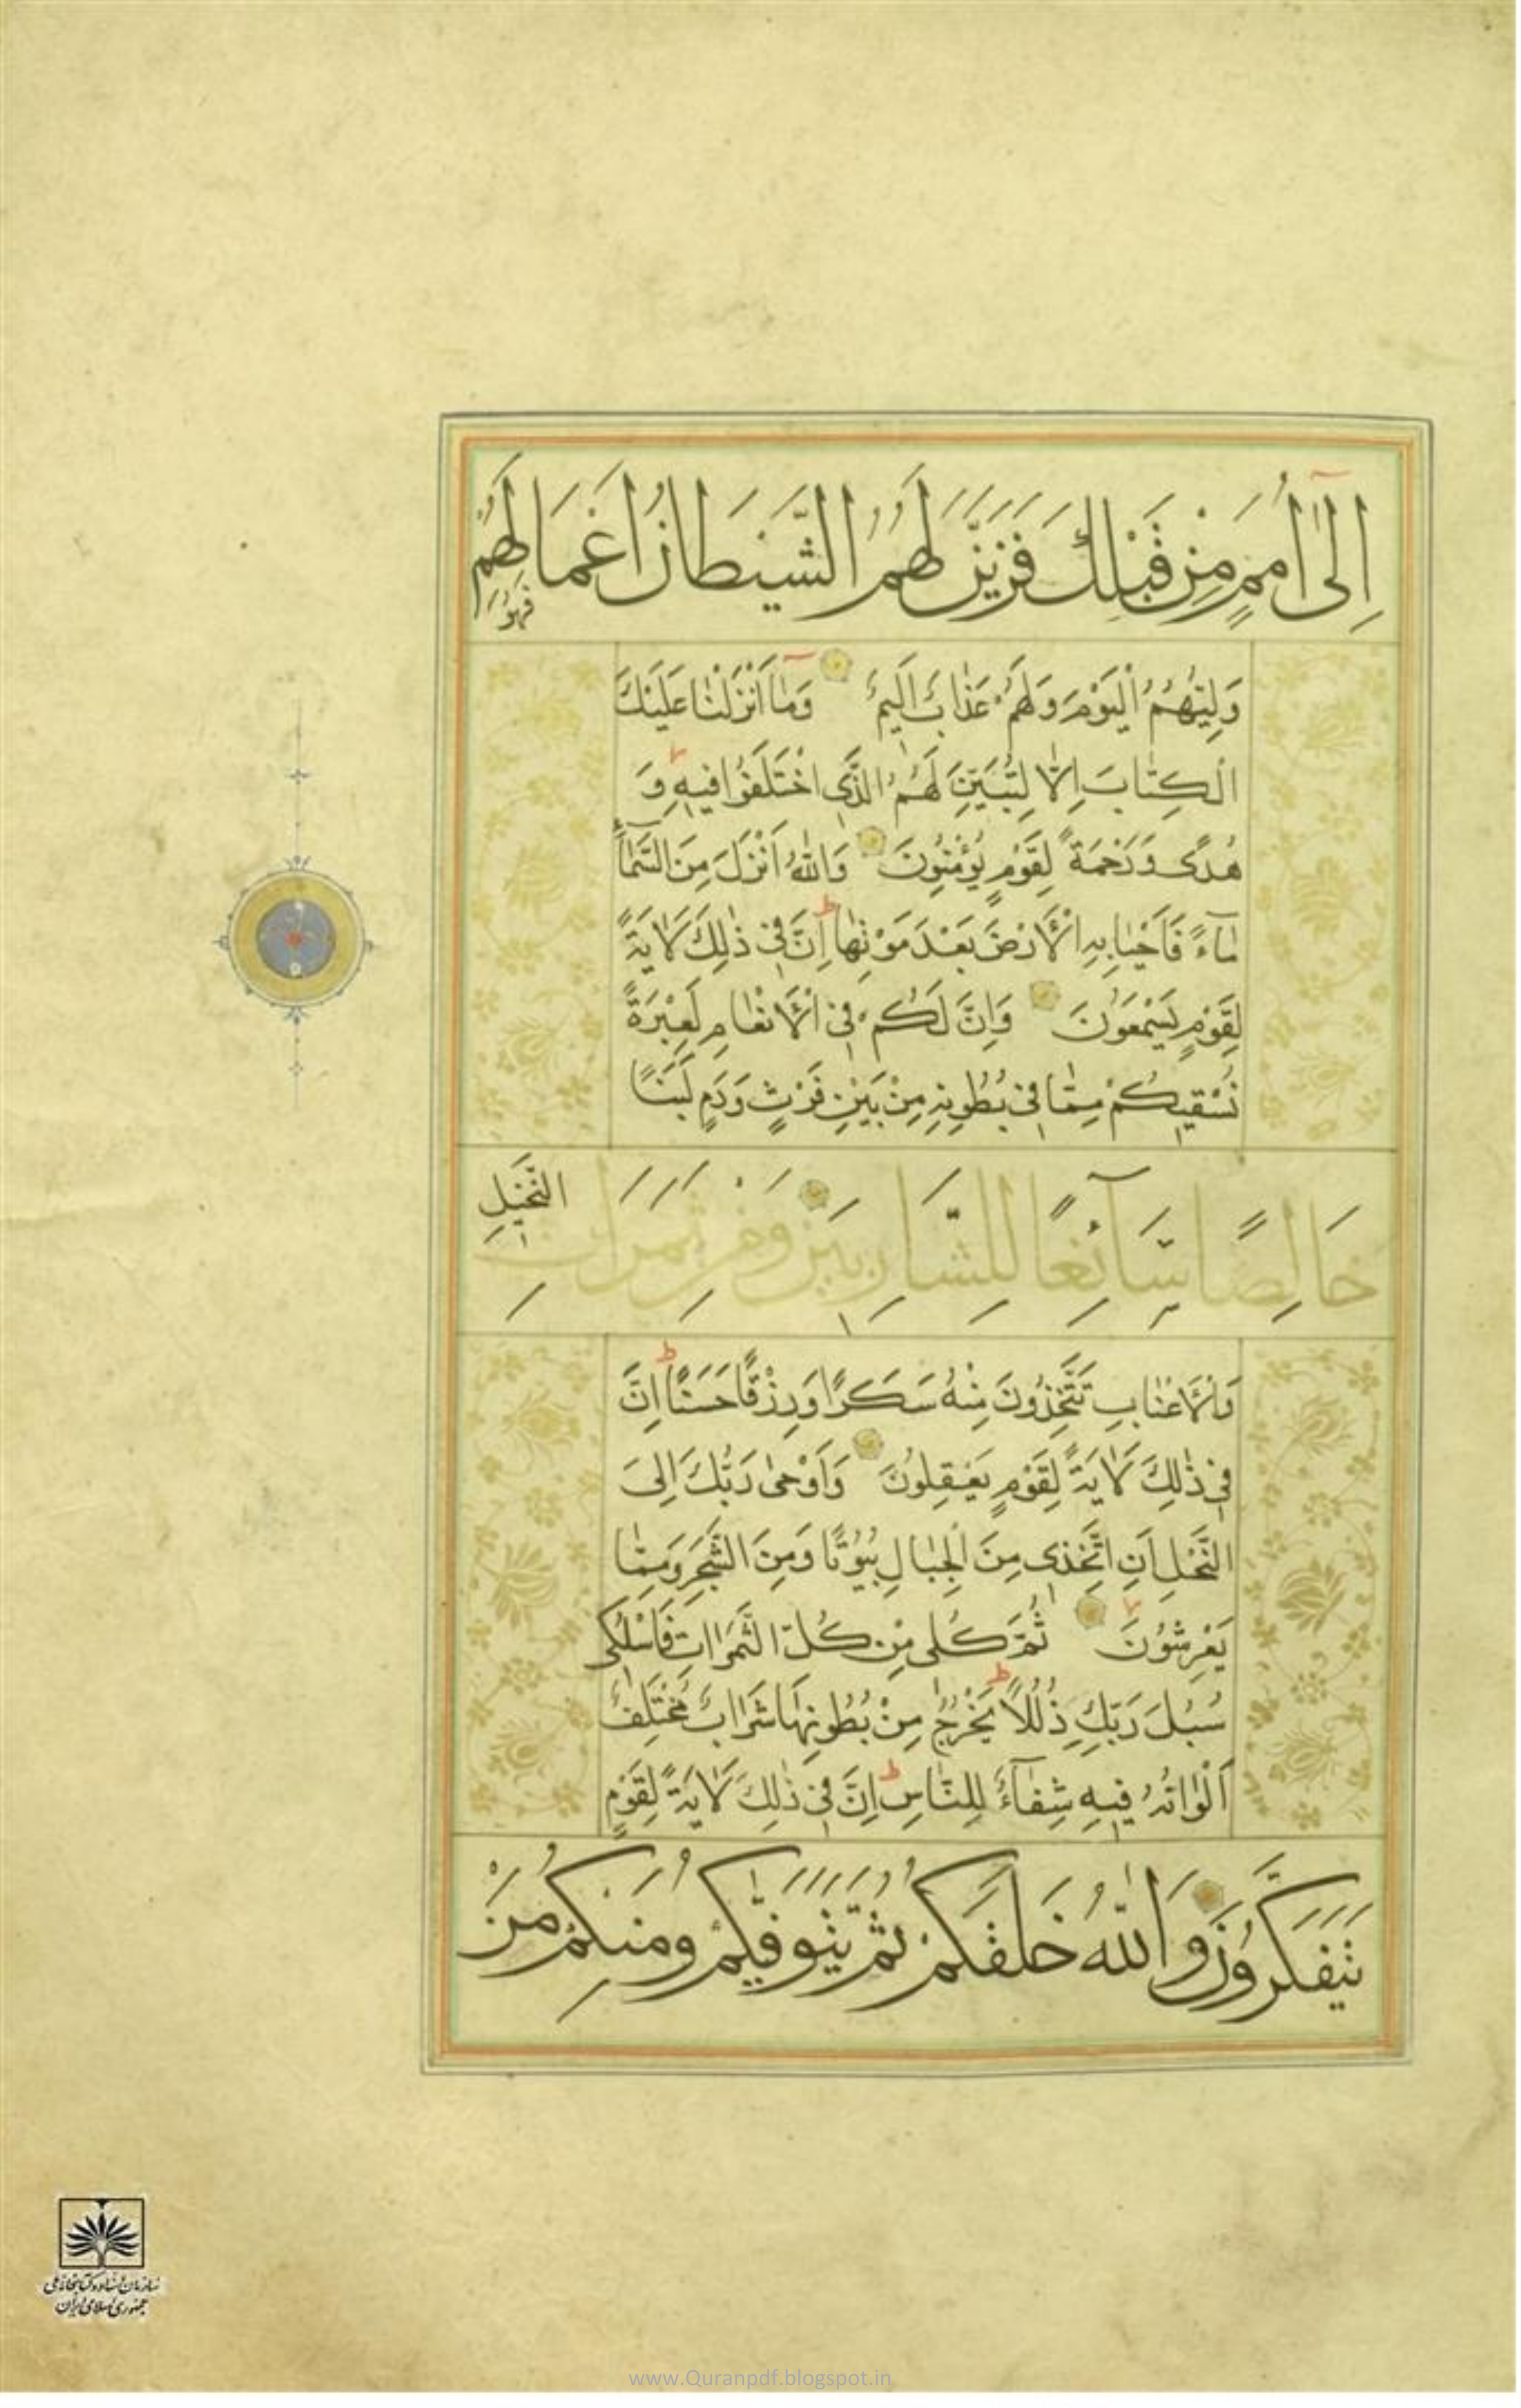 اِلىٰٓ اُمَمٍ مِنْ قَبْلِكَ فَزَيَّنَ لَهُمُ الشَّيْطَانُ اَعْمَالَهُمْ فَهُوَ
وَلِيُّهُمُ الْيَوْمَ وَلَهُمْ عَذٰابٌ اَلِيمٌ وَمٰٓا اَنْزَلْنٰا عَلَيْكَ
الْكِتٰابَ اِلّٰا لِتُبَيِّنَ لَهُمُ الَّذِى اخْتَلَفُوا فِيهِ وَ
هُدًى وَرَحْمَةً لِقَوْمٍ يُؤْمِنُونَ وَاللّٰهُ اَنْزَلَ مِنَ السَّمٰٓاءِ
مٰٓاءً فَاَحْيٰا بِهِ الْاَرْضَ بَعْدَ مَوْتِهٰا اِنَّ فِى ذٰلِكَ لَاٰيَةً
لِقَوْمٍ يَسْمَعُونَ وَاِنَّ لَكُمْ فِى الْاَنْعٰامِ لَعِبْرَةً
نُسْقِيكُمْ مِمّٰا فِى بُطُونِهِ مِنْ بَيْنِ فَرْثٍ وَدَمٍ لَبَنًا
خَالِصًا سَآئِغًا لِلشَّارِبِينَ وَمِنْ ثَمَرَاتِ النَّخِيلِ
وَالْاَعْنٰابِ تَتَّخِذُونَ مِنْهُ سَكَرًا وَرِزْقًا حَسَنًا اِنَّ
فِى ذٰلِكَ لَاٰيَةً لِقَوْمٍ يَعْقِلُونَ وَاَوْحىٰ رَبُّكَ اِلَى
النَّحْلِ اَنِ اتَّخِذِى مِنَ الْجِبٰالِ بُيُوتًا وَمِنَ الشَّجَرِ وَمِمّٰا
يَعْرِشُونَ ثُمَّ كُلِى مِنْ كُلِّ الثَّمَرٰاتِ فَاسْلُكِى
سُبُلَ رَبِّكِ ذُلُلًا يَخْرُجُ مِنْ بُطُونِهَا شَرٰابٌ مُخْتَلِفٌ
اَلْوٰانُهُ فِيهِ شِفٰٓاءٌ لِلنّٰاسِ اِنَّ فِى ذٰلِكَ لَاٰيَةً لِقَوْمٍ
يَتَفَكَّرُونَ وَاللّٰهُ خَلَقَكُمْ ثُمَّ يَتَوَفّٰيكُمْ وَمِنْكُمْ مَنْ
سازمان اسناد و کتابخانه ملی
جمهوری اسلامی ایران
www.Quranpdf.blogspot.in